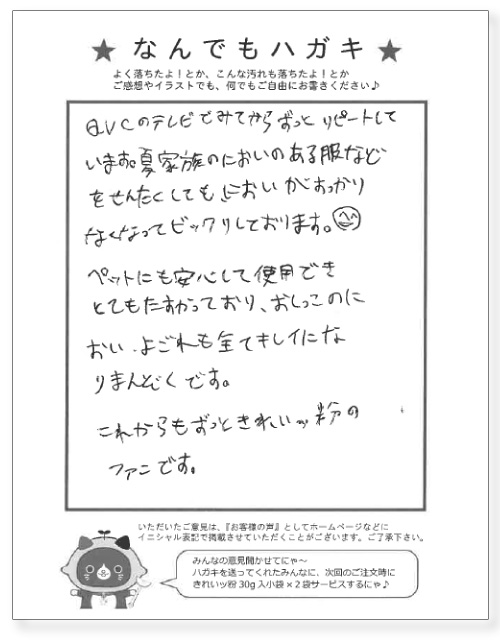 ★ なんでもハガキ ★
よく落ちたよ!とか、こんな汚れも落ちたよ!とか
ご感想やイラストでも、何でもご自由にお書きください♪
QVCのテレビでみてからずっとリピートして
います。夏家族のにおいのある服など
をせんたくしてもにおいがすっかり
なくなってビックリしております。
ペットにも安心して使用でき
とてもたすかっており、おしっこのに
おい、よごれも全てキレイにな
りまんぞくです。
これからもずっときれいッ粉の
ファンです。
いただいたご意見は、『お客様の声』としてホームページなどに
イニシャル表記で掲載させていただくことがございます。ご了承下さい。
みんなの意見聞かせてにゃ〜
ハガキを送ってくれたみんなに、次回のご注文時に
きれいッ粉30g入小袋×2袋サービスするにゃ♪